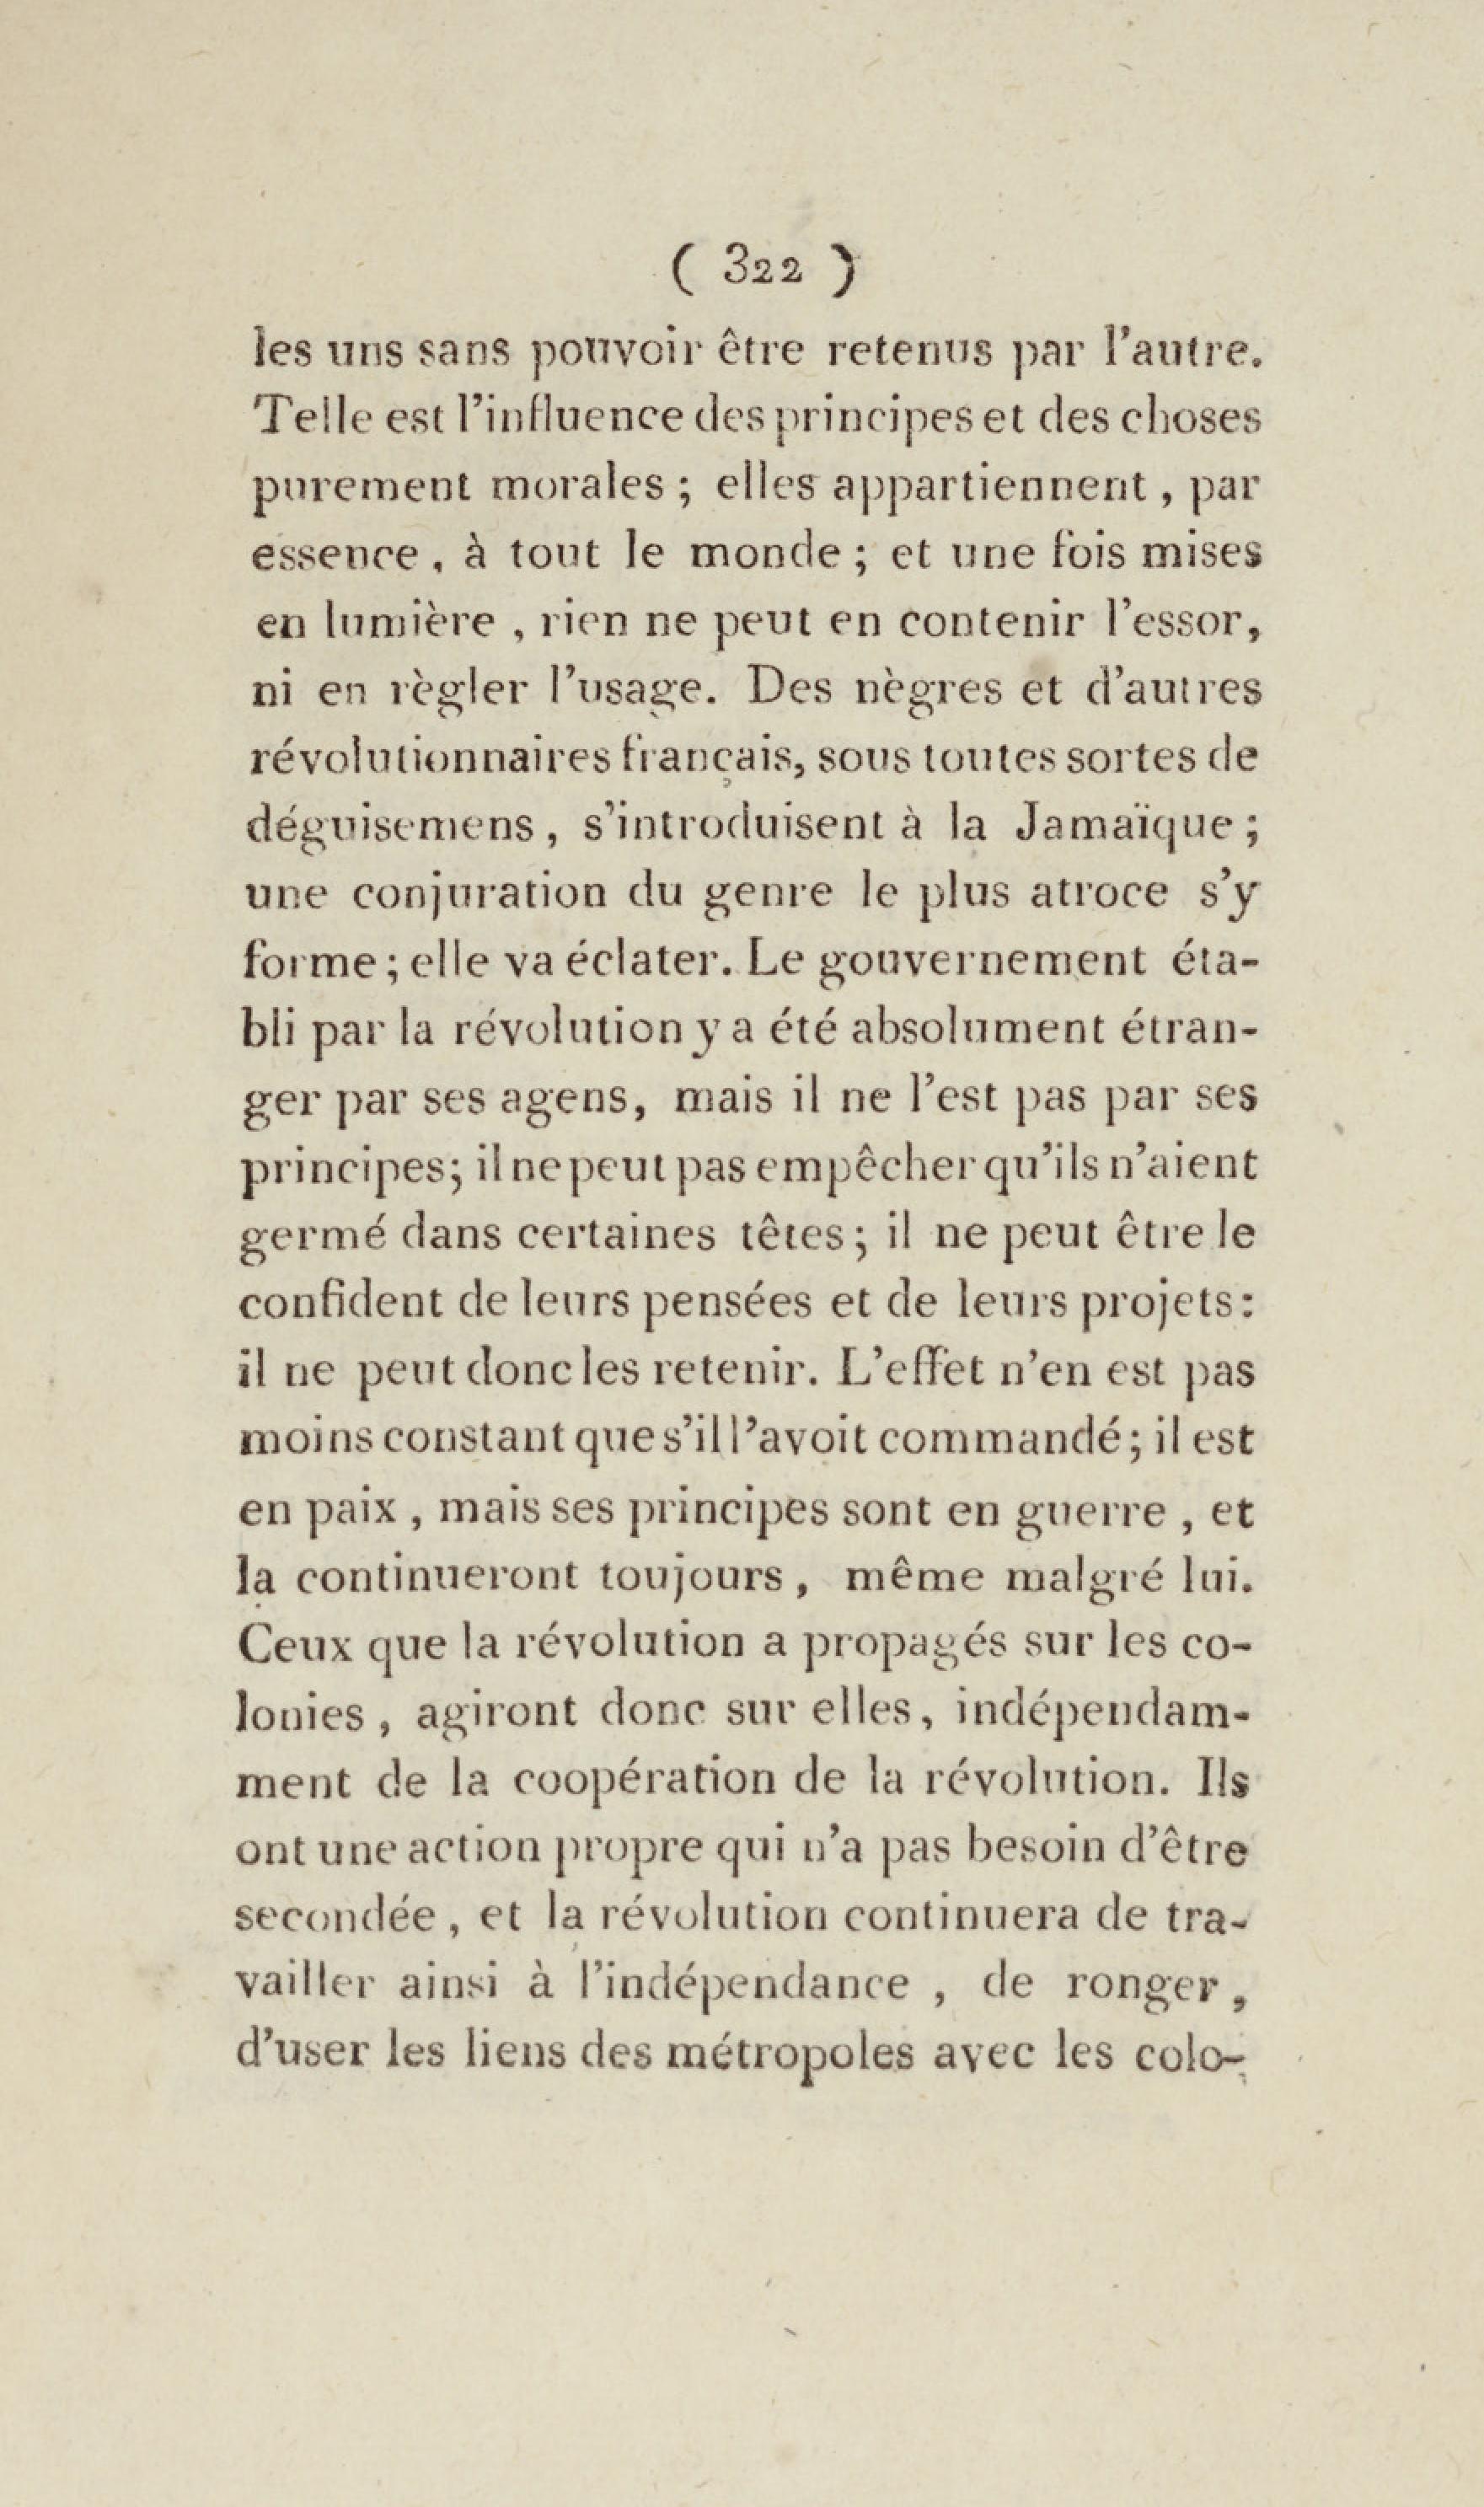 ( 322 )
les uns sans pouvoir être retenus par l'autre.
Telle est l'influence des principes et des choses
purement morales ; elles appartiennent , par
essence , à tout le monde ; et une fois mises
en lumière , rien ne peut en contenir l'essor,
ni en règler l'usage. Des nègres et d'autres
révolutionnaires français, sous toutes sortes de
déguisemens , s'introduisent à la Jamaïque ;
une conjuration du genre le plus atroce s'y
forme ; elle va éclater. Le gouvernement éta-
bli par la révolution y a été absolument étran-
ger par ses agens, mais il ne l'est pas par ses
principes; il ne peut pas empêcher qu'ils n'aient
germé dans certaines têtes ; il ne peut être le
confident de leurs pensées et de leurs projets :
il ne peut donc les retenir. L'effet n'en est pas
moins constant que s'il l'avoit commandé ; il est
en paix , mais ses principes sont en guerre , et
la continueront toujours , même malgré lui.
Ceux que la révolution a propagés sur les co-
lonies , agiront donc sur elles, indépendam-
ment de la coopération de la révolution. Ils
ont une action propre qui n'a pas besoin d'être
secondée , et la révolution continuera de tra-
vailler ainsi à l'indépendance , de ronger ,
d'user les liens des métropoles avec les colo-